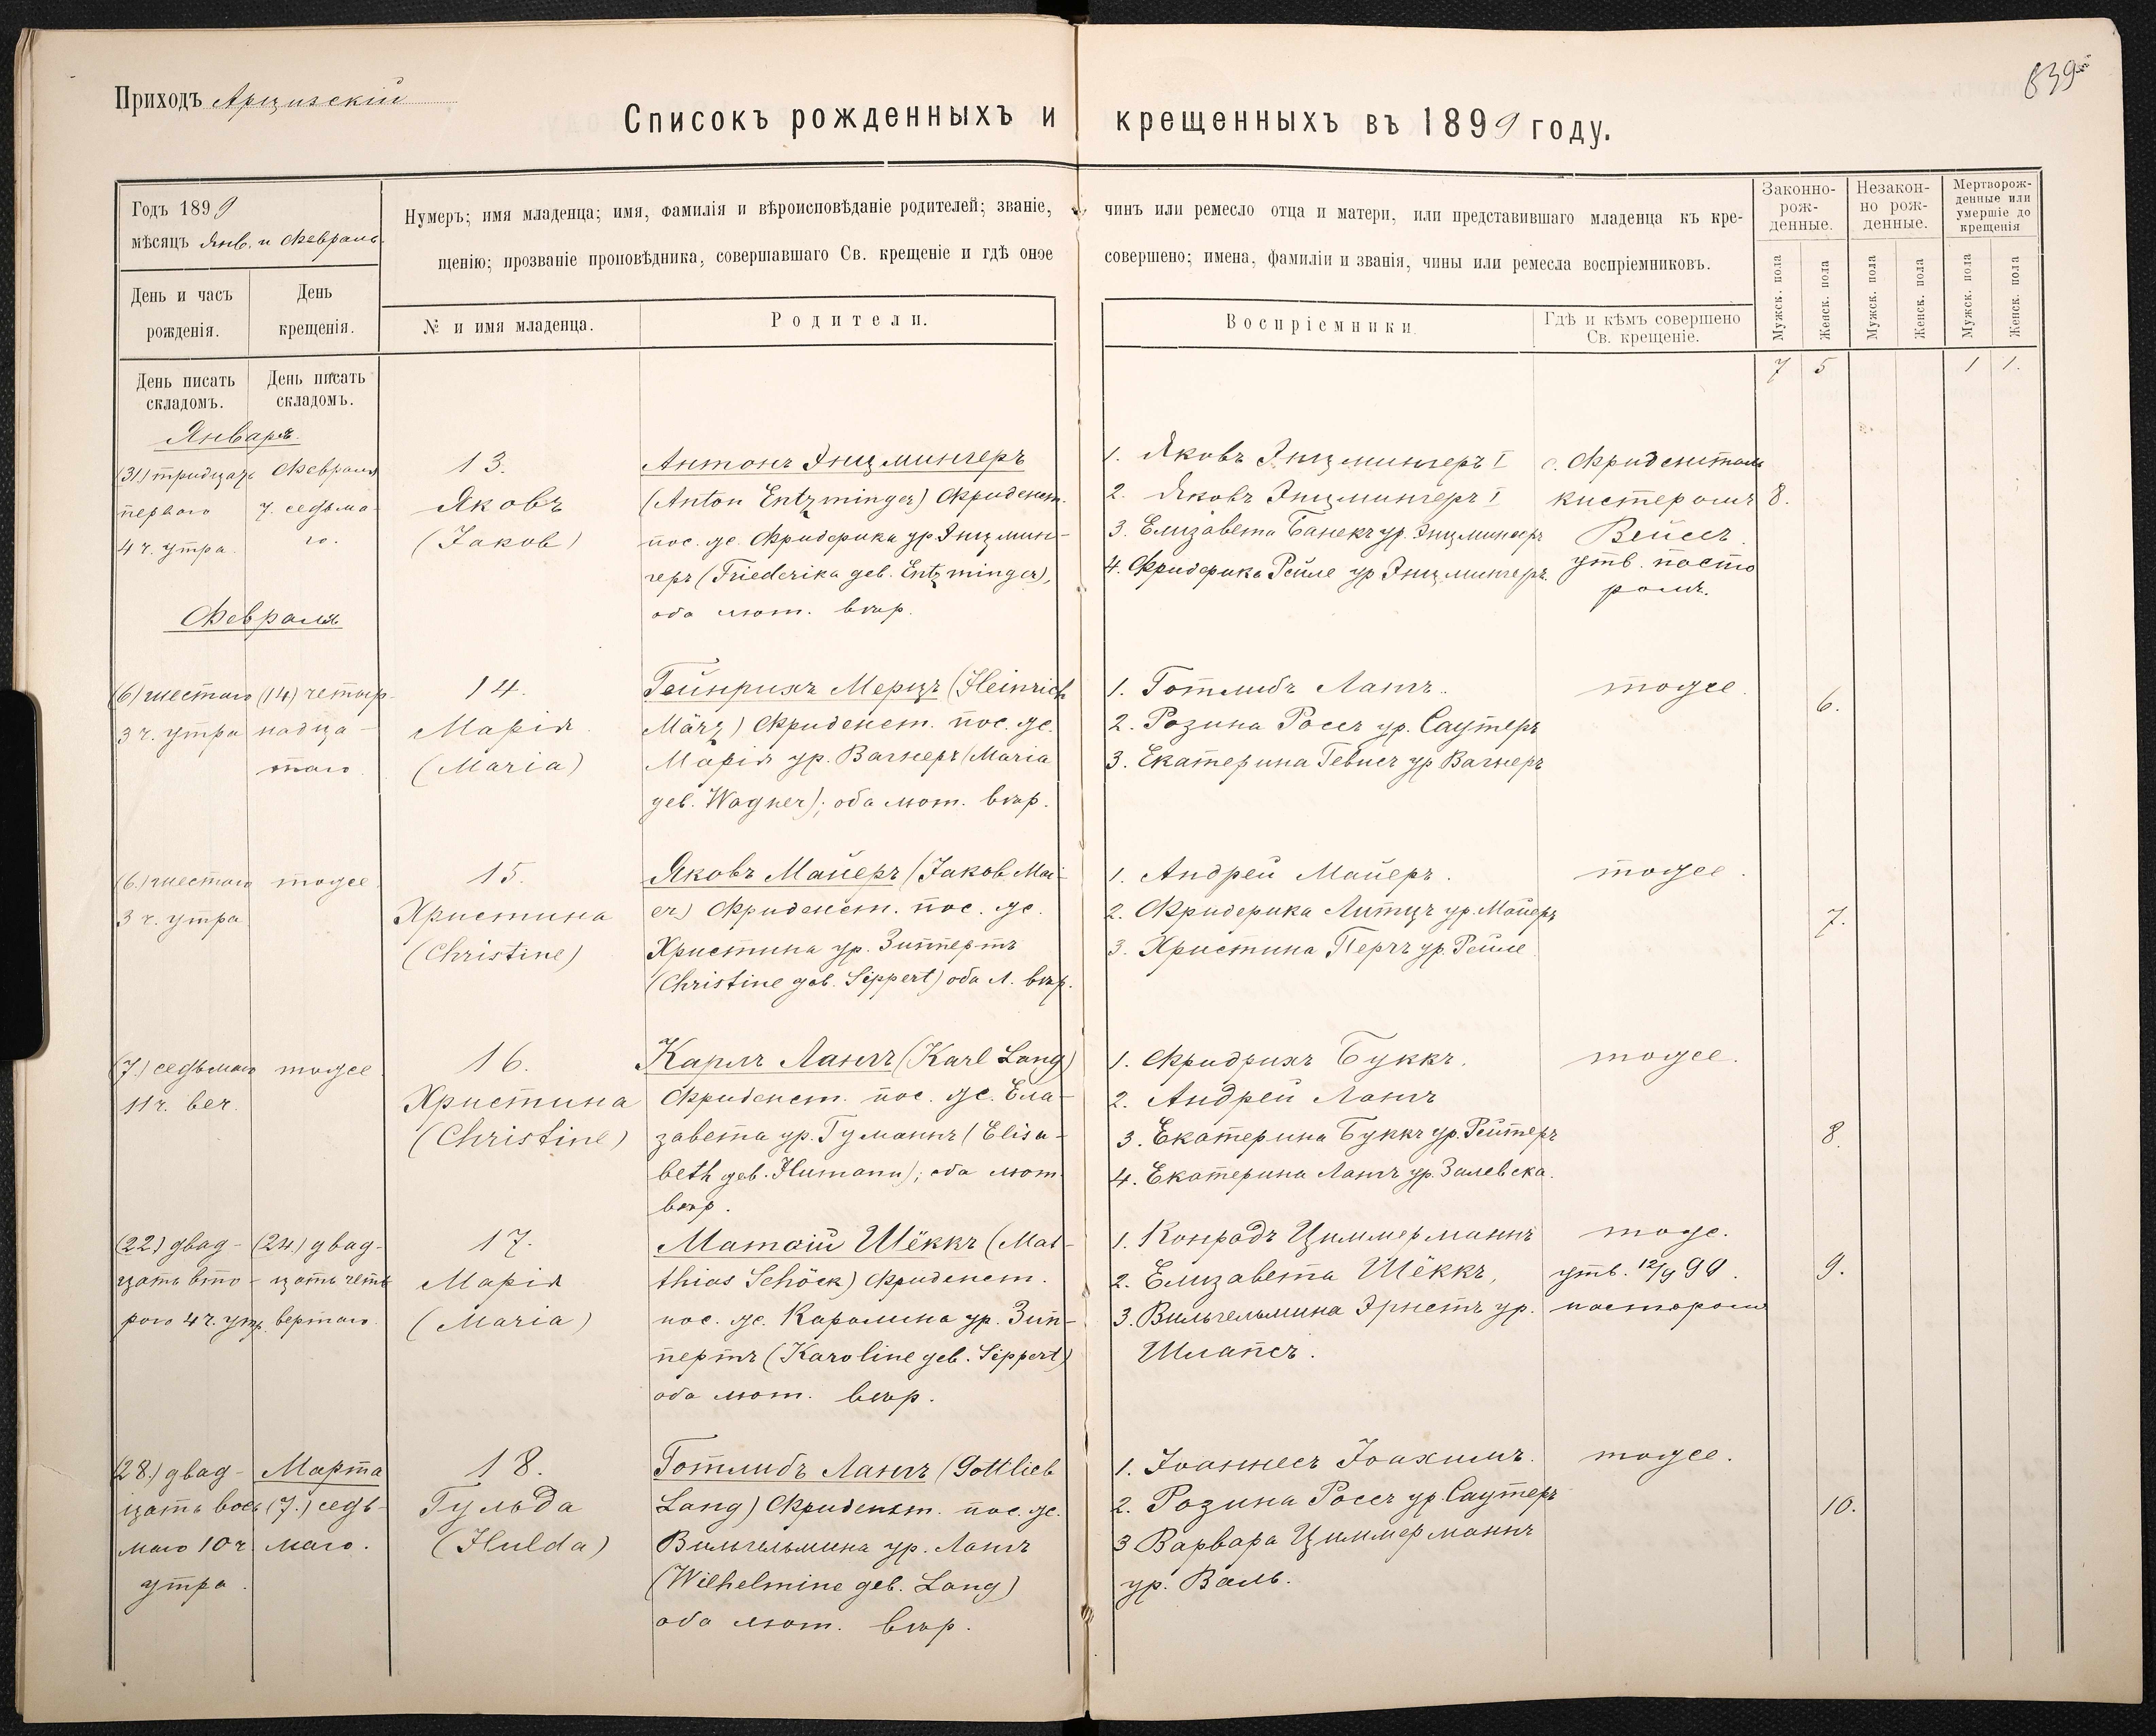 839
Приходъ Арцизскій
Списокъ рожденныхъ и крещенныхъ въ 1899 году.
Годъ 1899
мѣсяцъ Янв. и Февраль.
Нумеръ; имя младенца; имя, фамилія и вѣроисповѣданіе родителей; званіе, чинъ или ремесло отца и матери, или представившаго младенца къ кре-
щенію; прозваніе проповѣдника, совершавшаго Св. крещеніе и гдѣ оное совершено; имена, фамиліи и званія, чины или ремесла воспріемниковъ.
Законно-
рож-
денные.
Незакон-
но рож-
денные.
Мертворож-
денные или
умершіе до
крещенія
День и часъ
рожденія.
День
крещенія.
№ и имя младенца.
Родители.
Воспріемники
Гдѣ и кѣмъ совершено
Св. крещеніе.
Мужск. пола
Женск. пола
Мужск. пола
Женск. пола
Мужск. пола
Женск. пола
День писать
складомъ.
День писать
складомъ.
7 5 1 1.
Января.
(31) тридцать
перваго
4 ч. утра.
Февраля
7. седьма-
го.
13.
Яковъ
(Jakob)
Антонъ Энцмингеръ
(Anton Entzminger) Фриденст.
пос. же. Фридерика ур Энцмин-
геръ (Friederika geb. Entzminger),
оба лют. вѣр.
1. Яковъ Энцмингеръ I
2. Яковъ Энцмингеръ I
3. Елизавета Банекъ ур. Энцмингеръ
4. Фридерика Рейле ур Энцмингеръ.
с. Фриденсталь
кистеромъ
Вейсъ.
утв. пасто
ромъ.
8.
Февраля
(6) шестаго
3 ч. утра
(14) четыр-
надца-
таго.
14.
Марія.
(Maria)
Гейнрихъ Мерцъ (Heinrich
März) Фриденст. пос. же.
Марія ур. Вагнеръ (Maria
geb. Wagner); оба лют. вѣр.
1. Готлибъ Лангъ.
2. Розина Россъ ур. Саутеръ
3. Екатерина ур Вагнеръ
тоже.
6.
(6.) шестаго
3 ч. утра
тоже.
15.
Христина
(Christine)
Яковъ Майеръ (Jakob Mai-
er) Фриденст. пос. же.
Христина ур. Зиппертъ
(Christine geb. Sippert) оба л. вѣр.
1. Андрей Майеръ.
2. Фридерика Литцъ ур. Майеръ
3. Христина ур. Рейле
тоже.
7.
(7.) седьмаго
11 ч. веч.
тоже.
16.
Христина
(Christine)
Карлъ Лангъ (Karl Lang)
Фриденст. пос. же. Ели-
завета ур. Гуманнъ (Elisa-
beth geb. Humann); оба лют.
вѣр.
1. Фридрихъ Буккъ.
2. Андрей Лангъ
3. Екатерина Буккъ ур. Рейтеръ
4. Екатерина Лангъ ур. Залевска.
тоже.
8.
(22) двад-
цать вто-
рого 4 ч. утр.
(24.) двад-
цать чет-
вертаго.
17.
Марія
(Maria)
Матвій Шёккъ (Mat-
thias Schöck) Фриденст.
пос. же. Каролина ур. Зип-
пертъ (Karoline geb. Sippert)
оба лют. вѣр.
1. Конрадъ Циммерманнъ
2. Елизавета Шёккъ,
3. Вильгельмина Эрнстъ ур.
Шлапсъ.
тоже.
утв. 12/9 99.
пасторомъ
9.
(28.) двад-
цать вось-
маго 10 ч.
утра.
Марта
(7.) седь-
маго.
18.
Гульда
(Hulda)
Готлибъ Лангъ (Gottlieb
Lang) Фриденст. пос. же.
Вильгельмина ур. Лангъ
(Wilhelmine geb. Lang)
оба лют. вѣр.
1. Іоаннесъ Іоахимъ.
2. Розина Россъ ур. Саутеръ
3 Варвара Циммерманнъ
ур. Валь.
тоже.
10.